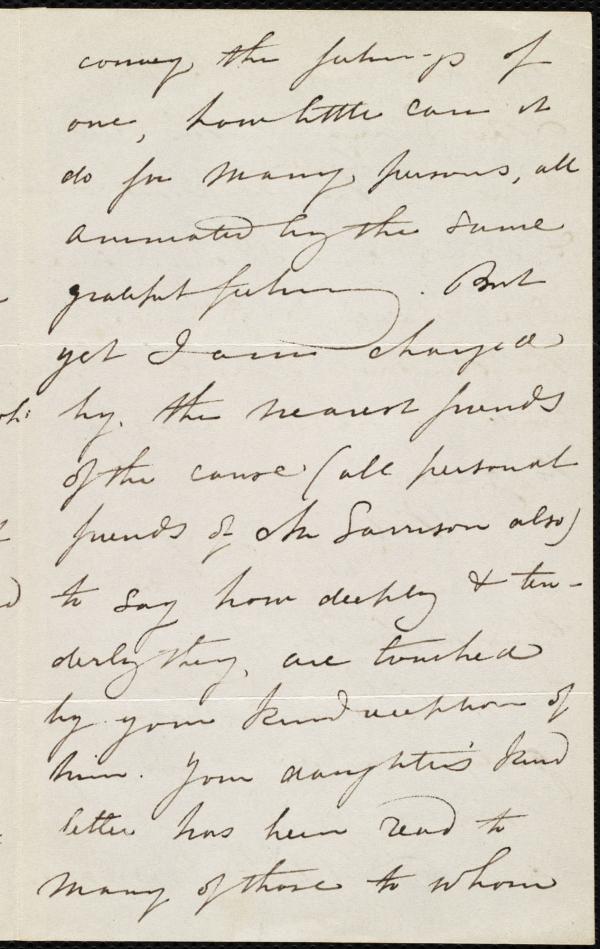 convey the feelings of
one, how little can it
do for many persons, all
animated by the same
grateful feeling. But
yet I am charged
by the nearest friends
of the cause (all personal
friends of Mr Garrison also)
to say how deeply & ten-
derly they are touched
by your kind reception of
him. Your daughter's kind
letter has been read to
many of those to whom